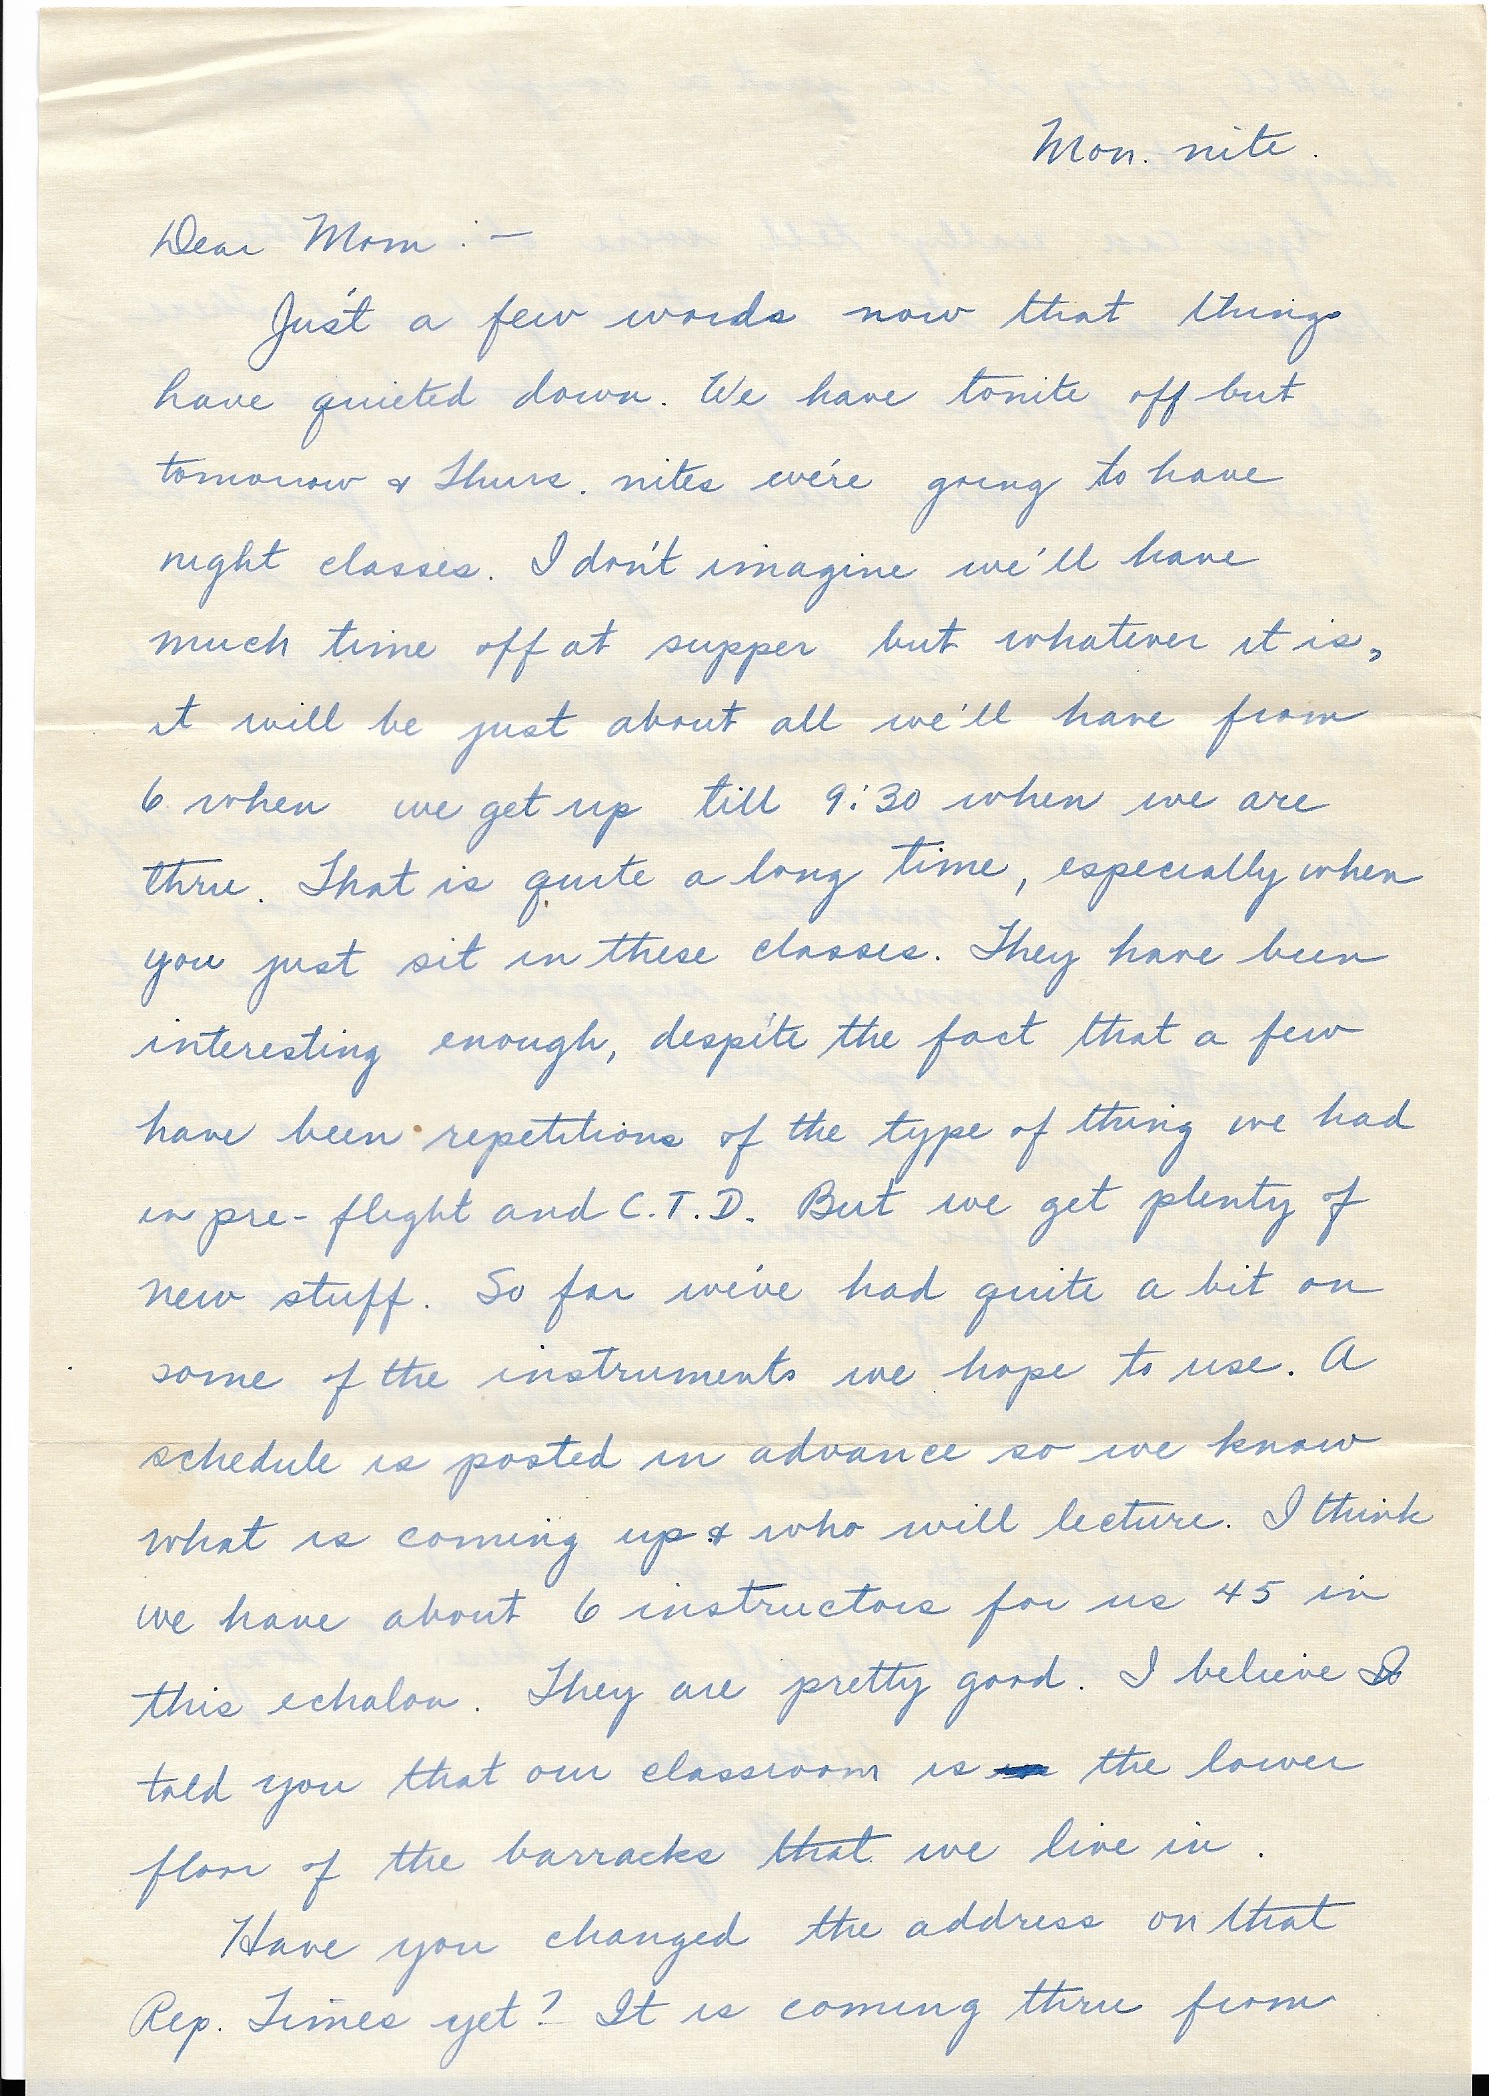 Mon. nite.
Dear Mom:—
Just a few words now that things
have quieted down. We have tonite off but
tomorrow & Thurs. nites we're going to have
night classes. I don't imagine we'll have
much time off at supper but whatever it is,
it will be just about all we'll have from
6 when we get up till 9:30 when we are
thru. That is quite a long time, especially when
you just sit in these classes. They have been
interesting enough, despite the fact that a few
have been repetitions of the type of thing we had
in pre-flight and C.T.D. But we get plenty of
new stuff. So far we've had quite a bit on
some of the instruments we hope to use. A
schedule is posted in advance so we know
what is coming up & who will lecture. I think
we have about 6 instructors for us 45 in
this echalon. They are pretty good. I believe I
told you that our classroom is the lower
floor of the barracks that we live in.
Have you changed the address on that
Rep. Times yet? It is coming thru from